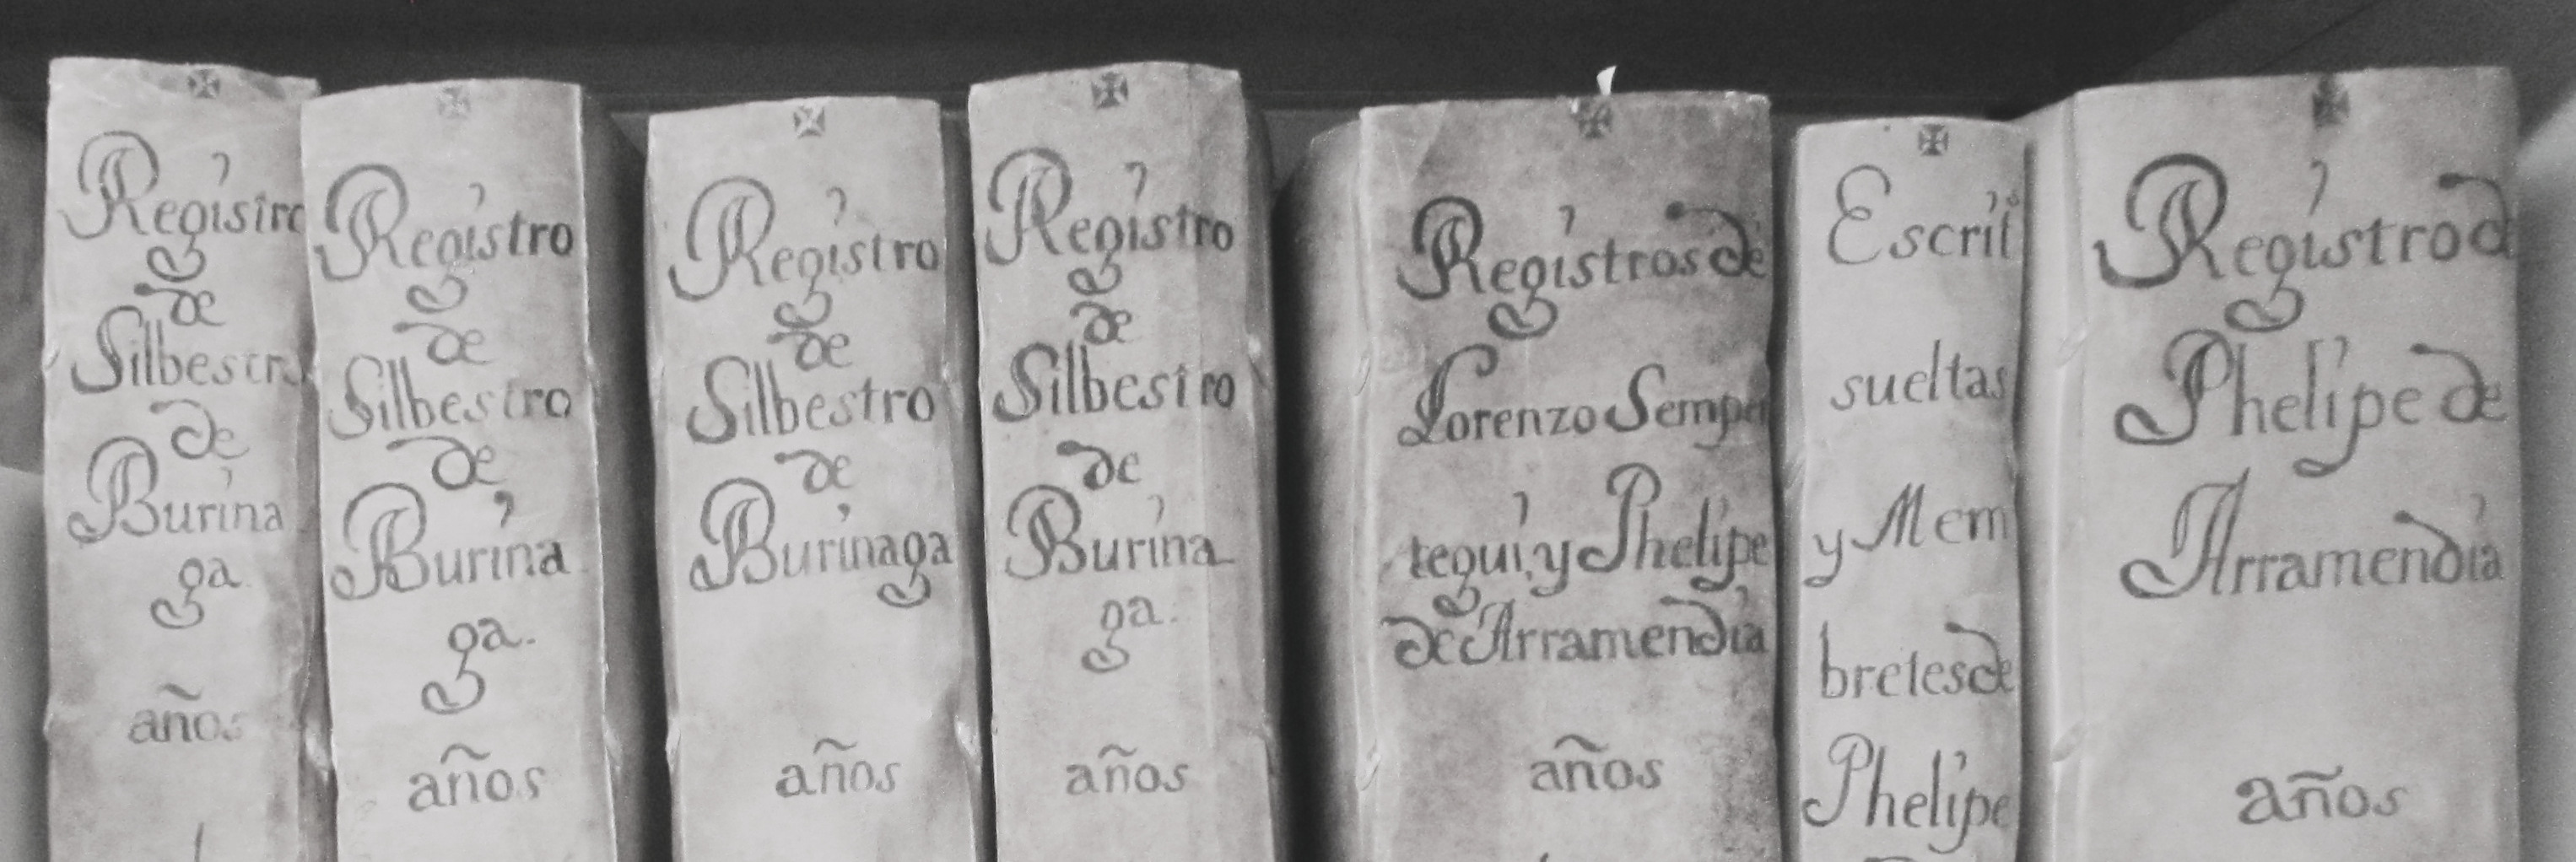 Registro
de
Silbestro
de
Burina
ga
años
Registro
de
Silbestro
de
Burina
ga.
años
Registro
de
Silbestro
de
Burinaga
años
Registro
de
Silbestro
de
Burina
ga.
años
Registros de
Lorenzo Semper
tegui, y Phelipe
de Arramendia
años
Escrit
sueltas
y Mem
bretes de
Phelipe
Registro d
Phelipe de
Arramendia
años